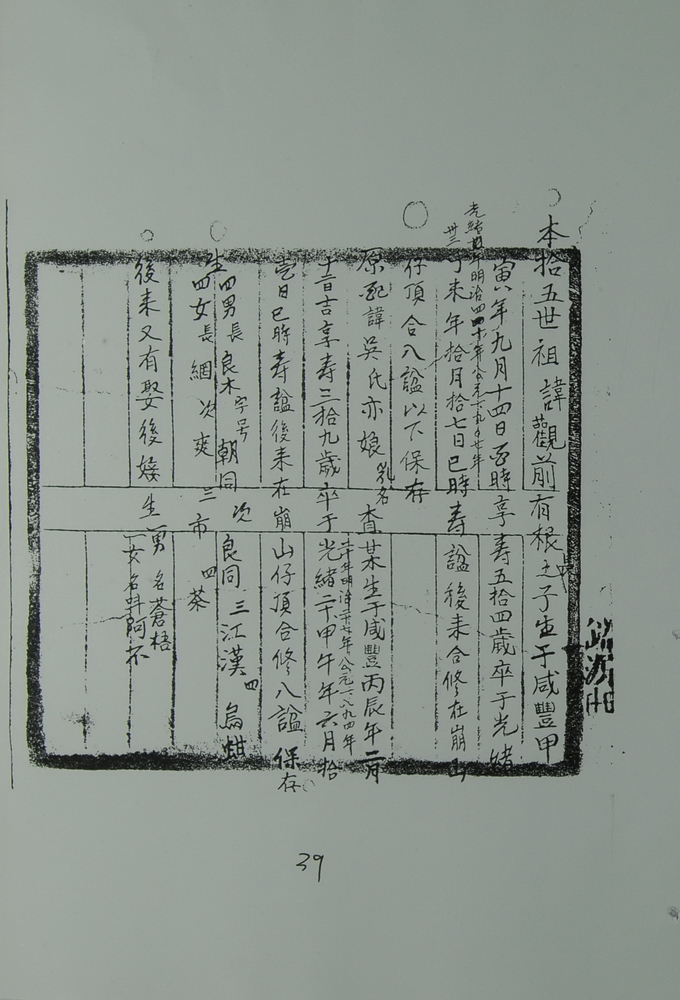 本拾五世祖諱觀前有根長之子生于咸豐甲
寅年九月十四日酉時享壽五拾四歲卒于光緒
光緒卅三年明治四十年公元一九〇七年
卅三丁未年拾月拾七日巳時寿諡後未合修在崩山
仔頂合八諡以下保存
原配諱吳氏亦娘乳名查某生于咸豐丙辰年二月
十一日吉享寿三拾九歲卒于光緒二十甲午年六月拾
二十年明治二十七年公元一八九四年
壱日巳時寿諡後未在崩山仔頂合修八諡保存
生四男長良木字号朝同次良同三江漢四烏蚶
四女長網次爽三市四茶
後来又有娶後婑生一男名蒼梧
一女名呌阿不
39